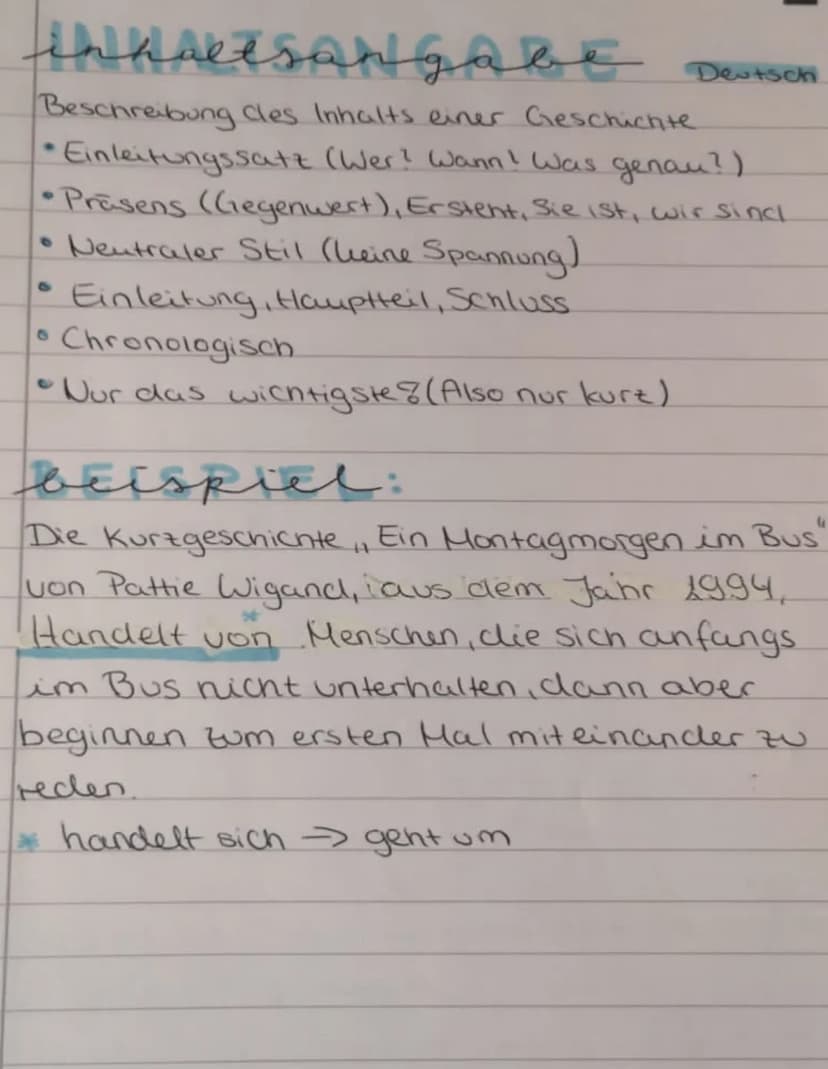 INHALTSANGABE
inhaltsangabe
Deutsch
Beschreibung des Inhalts einer Geschichte
• Einleitungssatz (Wer? Wann? Was genau?)
• Präsens (Gegenwert), Er steht, Sie ist, wir sind
• Neutraler Stil (keine Spannung)
• Einleitung, Hauptteil, Schluss
• Chronologisch
• Nur das wichtigste (Also nur kurz)
BEISPIEL:
beispiel
Die Kurzgeschichte „Ein Montagmorgen im Bus"
von Pattie Wigand, aus dem Jahr 1994,
Handelt von* Menschen, die sich anfangs
im Bus nicht unterhalten, dann aber
beginnen zum ersten Mal miteinander zu
reden.
* handelt sich → geht um